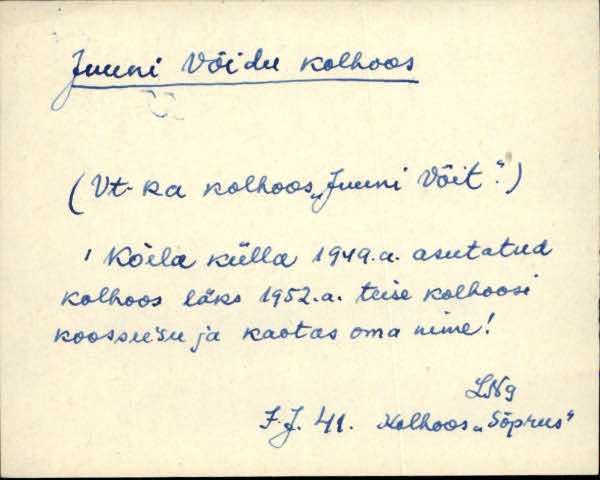 Juuni Võidu kolhoos
(Vt. ka kolhoos „Juuni Võit“.)
Kõela külla 1949.a. asutatud
kolhoos läks 1952.a. teise kolhoosi
koosseisu ja kaotas oma nime!
LNg
F.J. 41. Kolhoos „Sõprus“